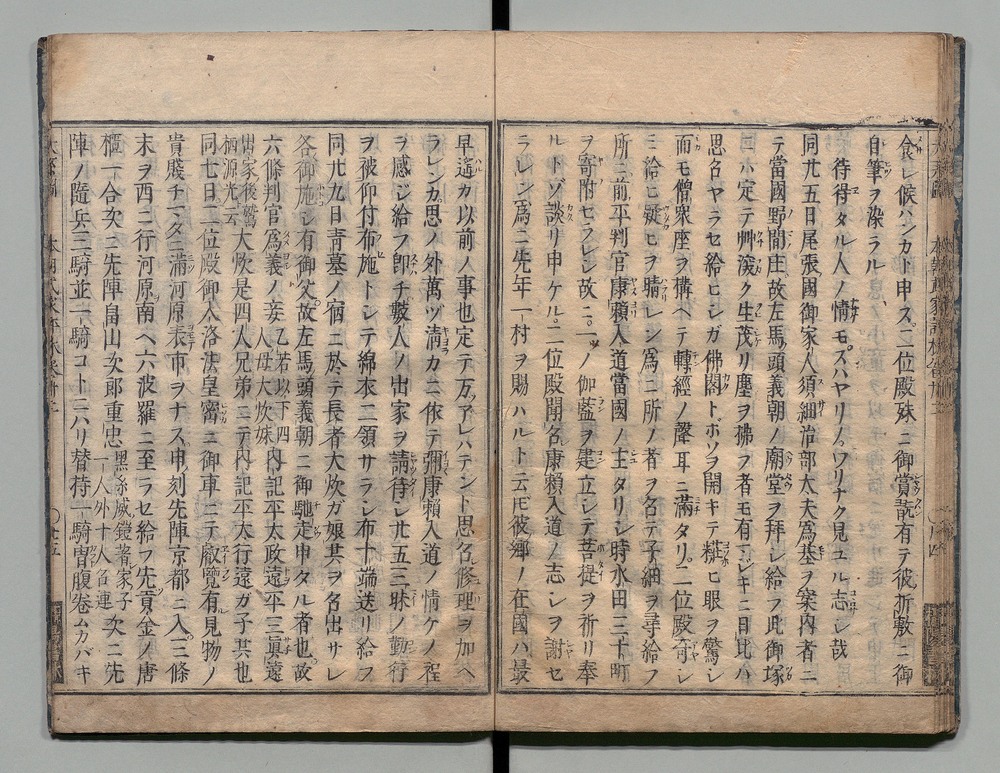 食レ候ハンカト申ス二位殿殊ニ御賞翫有テ彼折敷ニ御
自筆ヲ染ラル
待得タル人ノ情モズハヤリノワリナク見ユル志シ哉
同廿五日尾張國御家人須細治部太夫爲基ヲ案内者ニ
テ當國野間庄故左馬頭義朝ノ廟堂ヲ拜シ給フ此御塚
ハ定テ艸深ク生茂リ塵ヲ拂フ者モ有ニジキニ日比ハ
思召ヤラセ給ヒシガ佛閣トホソヲ開キテ粧ヒ眼ヲ驚シ
而モ僧衆座ヲ構ヘテ轉經ノ聲耳ニ滿タリ二位殿奇シ
ミ給ヒ疑ヒヲ晴レン爲ニ所ノ者ヲ召テ子細ヲ尋給フ
所ニ前平判官康頼入道當國ノ主タリシ時水田三十町
ヲ寄附セラレシ故ニ一ツノ伽藍ヲ建立シテ菩提ヲ祈リ奉
ルトゾ談リ申ケル二位殿聞召康頼入道ノ志シヲ謝セ
ラレン爲ニ先年一村ヲ賜ハルト云ヒ彼郷ノ在國ハ最
早遙カ以前ノ事也定テ万アレハテント思召修理ヲ加ヘ
ランカ思ノ外萬ヅ清カニ依テ彌康頼入道ノ情ケノ程
ヲ感ジ給フ即チ數人ノ出家ヲ請待シ廿五三昧ノ勤行
ヲ被仰付布施トシテ綿衣二領サラシ布十端送リ給フ
同廿九日青墓ノ宿ニ於テ長者大炊ガ娘其ヲ名出サレ
各御施シ有御父故左馬頭義朝ニ御馳走申タル者也故
六條判官爲義ノ妾乙若以下四人母大炊妹内記平太政遠平三眞遠
出家後鷲栖源光云大炊是四人兄弟ニテ内記平太行遠ガ子共也
同七日二位殿御入洛法皇密ニ御車ニテ叡覽有見物ノ
貴賤チマタニ滿河原表市ヲナス申ノ刻先陣京都ニ入三條
末ヲ西ニ行河原南ヘ六波羅ニ至ラセ給フ先貢金ノ唐
櫃一合次ニ先陣畠山次郎重忠黒糸威鎧著家子一人外十人召連次ニ先
陣ノ隨兵三騎並一騎コトニ六リ替持一騎冑腹巻ムカバキ